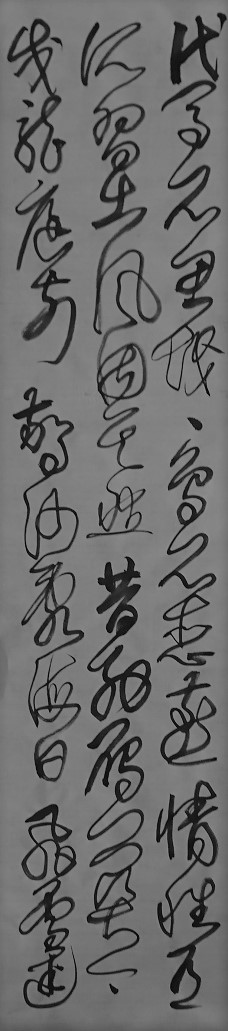 代馬不思越、禽不戀燕情性有
所習土風固其然昔別雁門關今
戍龍庭前驚沙亂海日飛雪迷